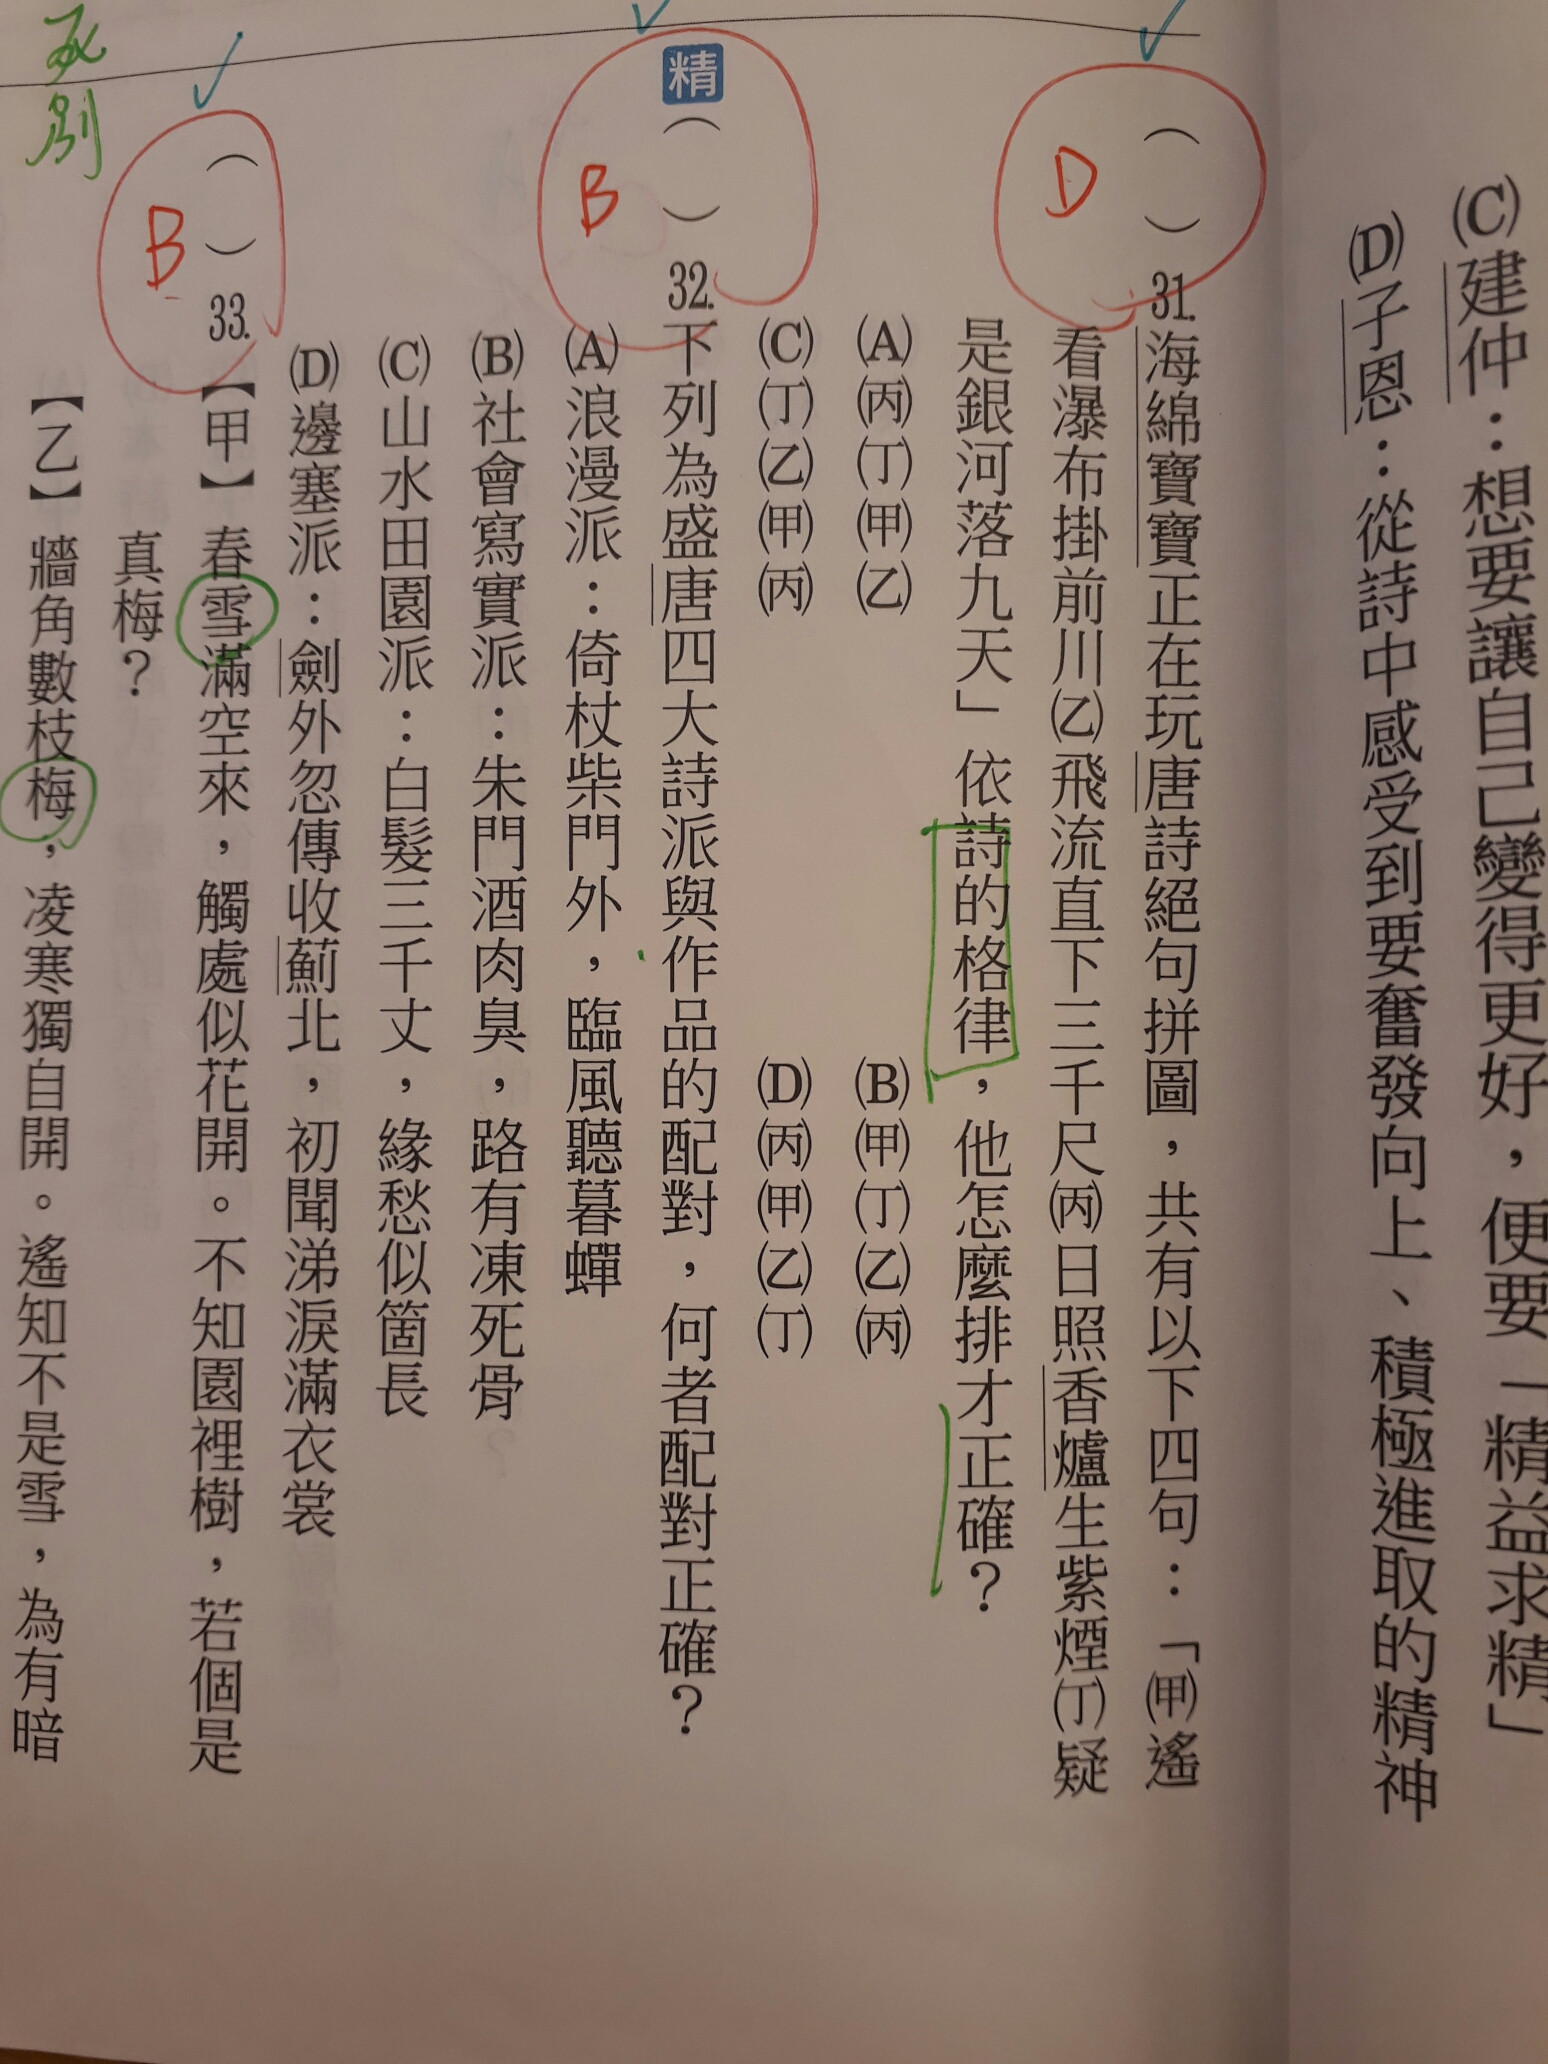 (C)建仲：想要讓自己變得更好，便要「精益求精」
(D)子恩：從詩中感受到要奮發向上、積極進取的精神
（　）31.海綿寶寶正在玩唐詩絕句拼圖，共有以下四句：「(甲)遙
D
看瀑布掛前川(乙)飛流直下三千尺(丙)日照香爐生紫煙(丁)疑
是銀河落九天」依詩的格律，他怎麼排才正確？
(A)(丙)(丁)(甲)(乙)　(B)(甲)(丁)(乙)(丙)
(C)(丁)(乙)(甲)(丙)　(D)(丙)(甲)(乙)(丁)
精（　）32.下列為盛唐四大詩派與作品的配對，何者配對正確？
B
(A)浪漫派：倚杖柴門外，臨風聽暮蟬
(B)社會寫實派：朱門酒肉臭，路有凍死骨
(C)山水田園派：白髮三千丈，緣愁似箇長
(D)邊塞派：劍外忽傳收薊北，初聞涕淚滿衣裳
（　）33.【甲】春雪滿空來，觸處似花開。不知園裡樹，若個是
B
真梅？
【乙】牆角數枝梅，凌寒獨自開。遙知不是雪，為有暗
死別